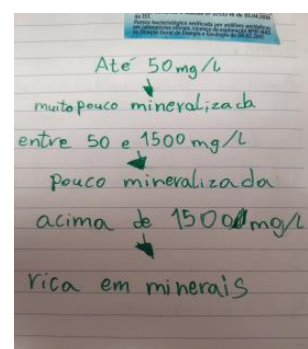 Até 50 mg/L
muito pouco mineralizada
entre 50 e 1500 mg/L
pouco mineralizada
acima de 1500 mg/L
rica em minerais